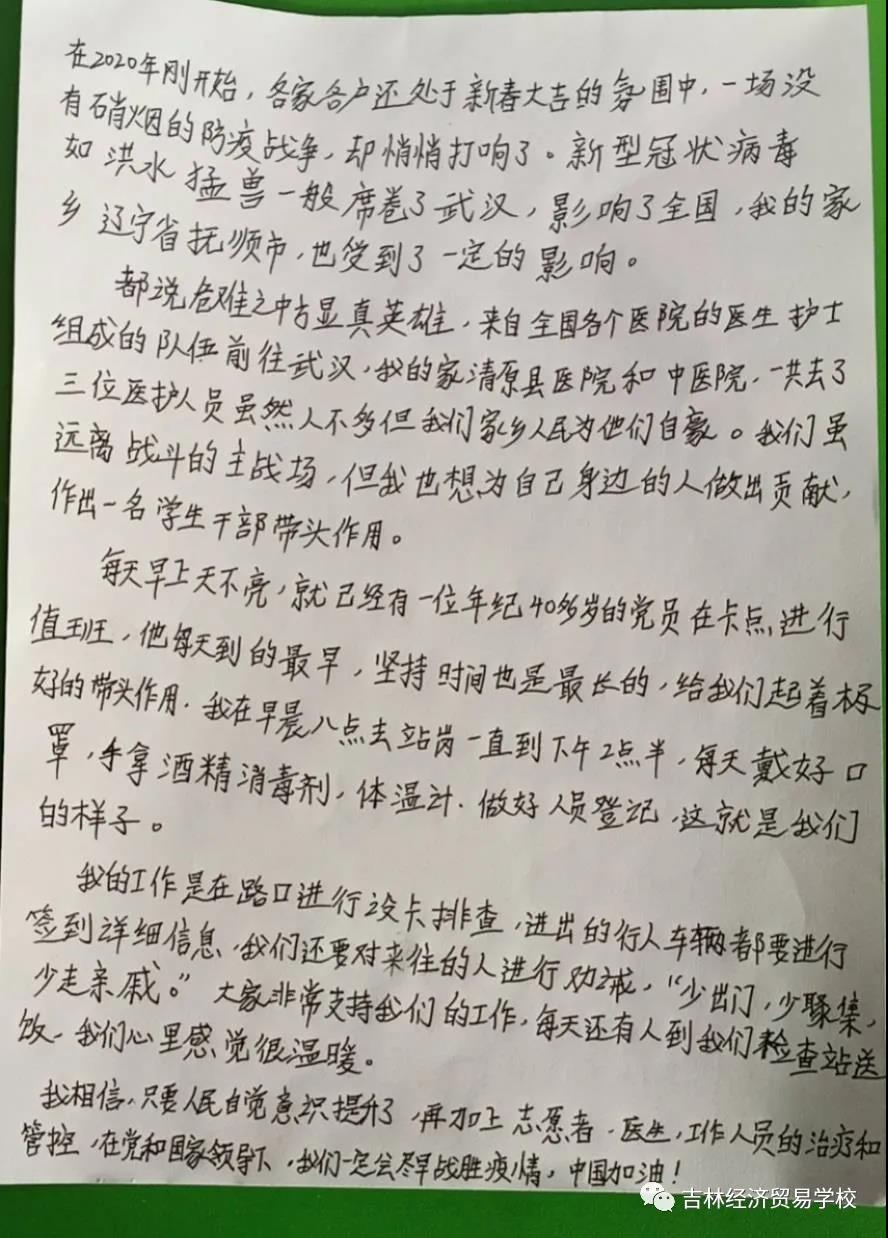 在2020年刚开始，各家各户还处于新春大吉的氛围中，一场没
有硝烟的防疫战争，却悄悄打响了。新型冠状病毒
如洪水猛兽一般席卷了武汉，影响了全国，我的家
乡辽宁省抚顺市，也受到了一定的影响。
都说危难之中方显真英雄，来自全国各个医院的医生护士
组成的队伍前往武汉，我的家清原县医院和中医院，一共去了
三位医护人员虽然人不多但我们家乡人民为他们自豪。我们虽
远离战斗的主战场，但我也想为自己身边的人做出贡献，
作出一名学生干部带头作用。
每天早上天不亮，就已经有一位年纪40多岁的党员在卡点进行
值班，他每天到的最早，坚持时间也是最长的，给我们起着标
好的带头作用．我在早晨八点去站岗一直到下午2点半，每天戴好口
罩，手拿酒精消毒剂，体温计．做好人员登记，这就是我们
的样子。
我的工作是在路口进行设卡排查，进出的行人车辆都要进行
签到详细信息，我们还要对来往的人进行劝诫，“少出门，少聚集，
少走亲戚。”大家非常支持我们的工作，每天还有人到我们检查站送
饭．我们心里感觉很温暖。
我相信，只要人民自觉意识提升了，再加上志愿者．医生，工作人员的治疗和
管控，在党和国家领导下，我们一定会尽早战胜疫情，中国加油！
吉林经济贸易学校